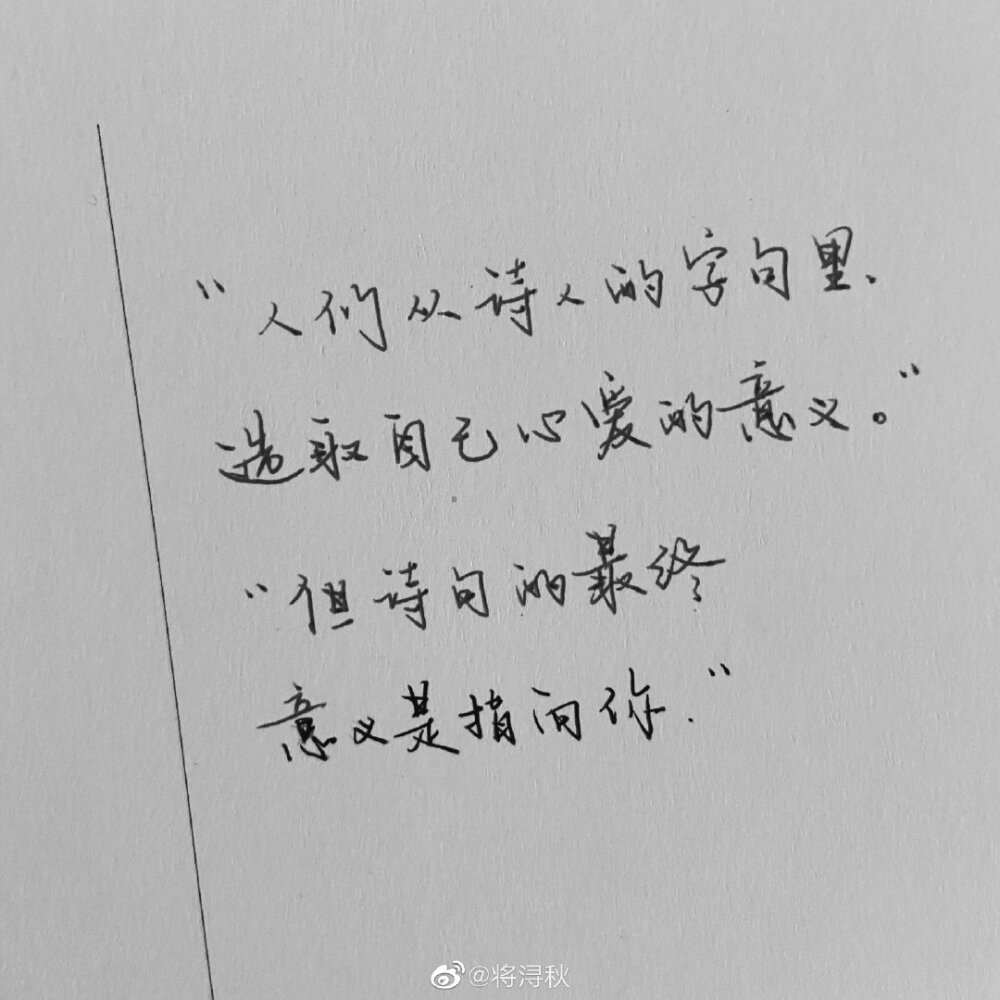 “人们从诗人的字句里、
选取自己心爱的意义。”
“但诗句的最终
意义是指向你.”
@将浔秋